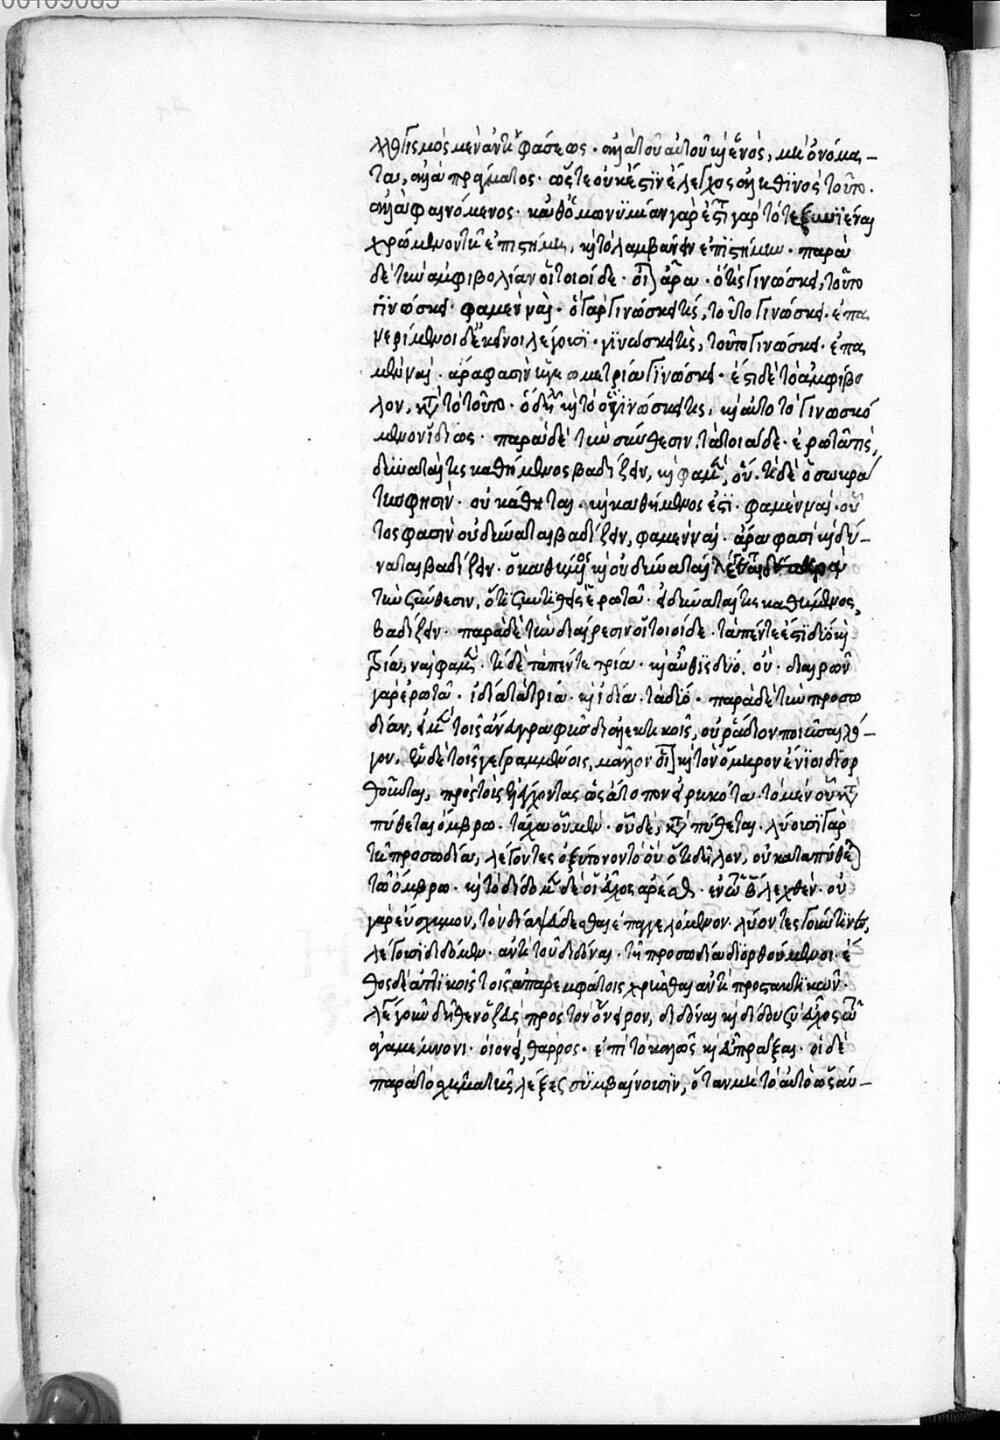 λλογισμὸς μὲν ἀντιφάσεως · ἀλλὰ τοῦ αὐτοῦ καὶ ἑνὸς, μὴ ὀνόμα–
τος, ἀλλὰ πράγματος · ὥστε οὐκ ἔστιν ἔλεγχος ἀληθινὸς τοῦτο ·
ἀλλὰ φαινόμενος · καθ' ὁμωνυμίαν γὰρ ἔστι γὰρ τὸ
χρώμενον τῇ ἐπιστήμῃ, καὶ τὸ λαμβάνειν ἐπιστήμην · παρὰ
δὲ τὴν ἀμφιβολίαν οἱ τοιοίδε · ἆρα · ὅ τις γινώσκει, τοῦτο
γινώσκει · φαμὲν ναί · ὃ γὰρ γινώσκει τίς, τοῦτο γινώσκει · ἐπα
νερχόμενοι δὲ ἐκεῖνοι λέγουσι · γινώσκει τὶς, τοῦτο γινώσκει · ἐπα
μὲν ναί · ἆρα φασὶν ἡ γεωμετρία γινώσκει · ἔστι δὲ τὸ ἀμφίβο
λον, κατὰ τὸ τοῦτο · ὃ δηλοῖ καὶ τὸ ὃ γινώσκει τις, καὶ αὐτὸ τὸ γινωσκό
μενον ἰδίως · παρὰ δὲ τὴν σύνθεσιν, τὰ τοιαίδε · ἐρωτᾷ τὶς,
δύναταί τις καθήμενος βαδίζειν, καὶ φαμὲν, οὔ · τί δὲ ὁ σωκρά
της φησὶν · οὐ κάθηται · καὶ καθήμενος ἐστί · φαμὲν ναί · οὗ
τος φασὶν οὐ δύναται βαδίζειν, φαμὲν ναί · ἆρα φασὶ καὶ δύ–
ναται βαδίζειν · ὁ καθήμενος καὶ οὐ δύναται
τὴν σύνθεσιν, ὅτι συντιθεὶς ἐρωτᾷ · εἰ δύναταί τις καθήμενος,
βαδίζειν · παρὰ δὲ τὴν διαίρεσιν οἱ τοιοίδε · τὰ πέντε ἐστὶ δύο καὶ
τρία, ναὶ φαμὲν · τί δὲ τὰ πέντε τρία · καὶ αὖθις δύο · οὔ · διαιρῶν
γὰρ ἐρωτᾷ · ἰδίᾳ τὰ τρία · καὶ ἰδίᾳ τὰ δύο · παρὰ δὲ τὴν προσῳ
δίαν, ἐν μὲν τοῖς ἄνευ γραφῆς διαλεκτικοῖς, οὐ ῥᾴδιον ποιῆσαι λό–
γον, ἐν δὲ τοῖς γεγραμμένοις, μᾶλλον καὶ τὸν ὅμηρον ἔνιοι διορ
θοῦνται, πρὸς τοὺς ἐλέγχοντας ὡς ἄτοπον εἰρηκότα · τὸ μὲν οὗ κατα
πύθεται ὄμβρῳ · οὐδὲ, κατα πύθεται · λύουσι γὰρ
τῇ προσῳδίᾳ, λέγοντες ὀξύτονον τὸ οὐ ὅτι δῆλον, οὐ καταπύθεται
τῷ ὄμβρῳ · καὶ τὸ δίδομεν δέ οἱ εὖχος ἀρέσθαι · λεχθέν · οὐ
γὰρ εὔσχημον, τὸν δία ψεύδεσθαι ἐπαγγελόμενον · λύοντες
λέγουσι διδόμεν · ἀντὶ τοῦ διδόναι · τῇ προσῳδίᾳ διορθούμενοι · ἔ
θος δὲ ἀττικοῖς τοῖς ἀπαρεμφάτοις χρῆσθαι ἀντὶ προστακτικῶν ·
λέγουσι δῆθεν ὁ ζεὺς πρὸς τὸν ὄνειρον, διδόναι καὶ δίδου σὺ εὖχος τῷ
ἀγαμέμνονι · οἱονεὶ, θάρρος · ἐπὶ τὸ καλῶς καὶ εὖ πρᾶξαι · οἱ δὲ
παρὰ τὸ σχῆμα τῆς λέξεως συμβαίνουσιν, ὅταν μὴ τὸ αὐτὸ ὡσαύ–